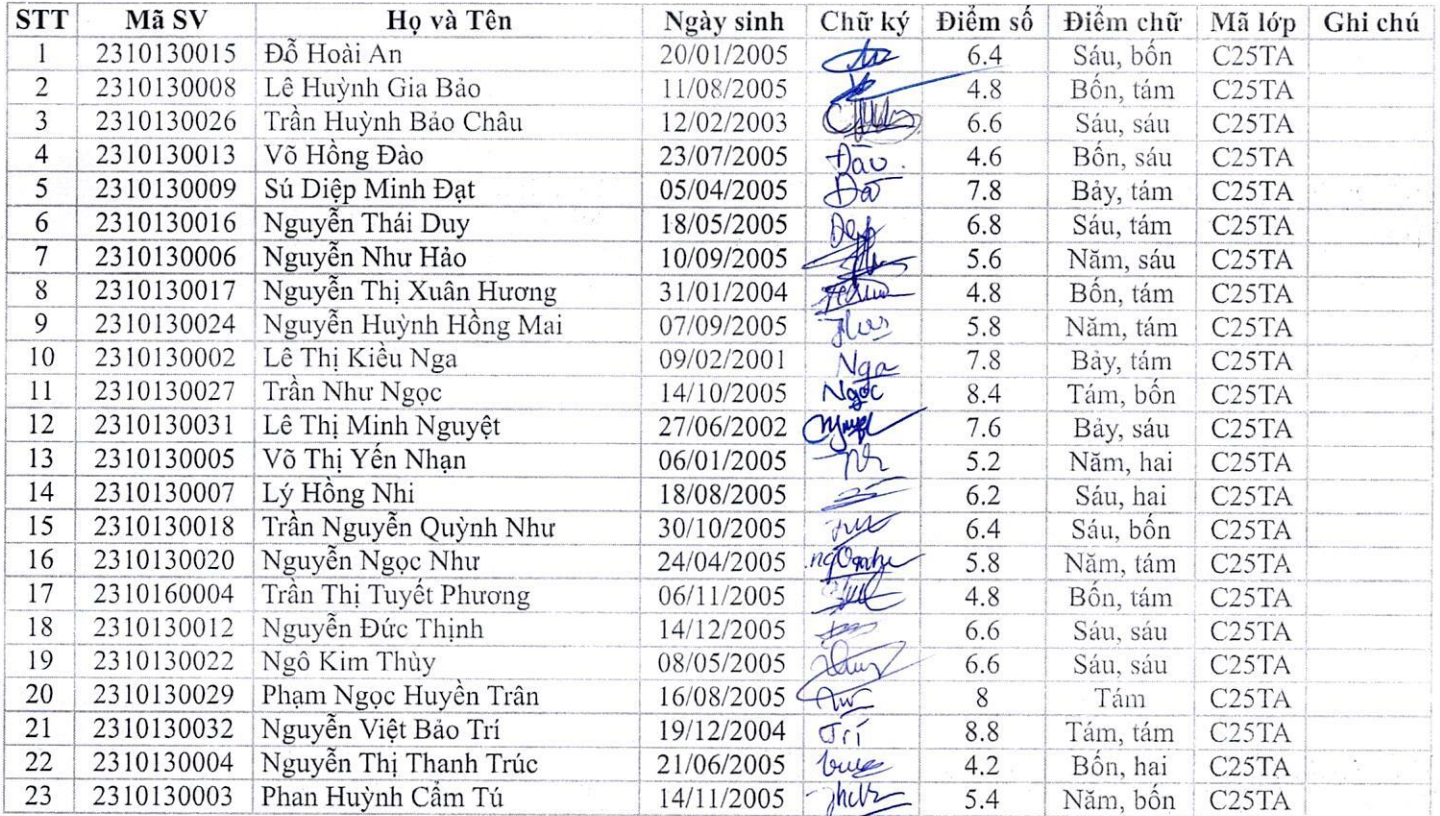 STT Mã SV Họ và Tên Ngày sinh Chữ ký Điểm số Điểm chữ Mã lớp Ghi chú
1 2310130015 Đỗ Hoài An 20/01/2005 6.4 Sáu, bốn C25TA
2 2310130008 Lê Huỳnh Gia Bảo 11/08/2005 4.8 Bốn, tám C25TA
3 2310130026 Trần Huỳnh Bảo Châu 12/02/2003 6.6 Sáu, sáu C25TA
4 2310130013 Võ Hồng Đào 23/07/2005 Đào 4.6 Bốn, sáu C25TA
5 2310130009 Sú Diệp Minh Đạt 05/04/2005 7.8 Bảy, tám C25TA
6 2310130016 Nguyễn Thái Duy 18/05/2005 6.8 Sáu, tám C25TA
7 2310130006 Nguyễn Như Hảo 10/09/2005 5.6 Năm, sáu C25TA
8 2310130017 Nguyễn Thị Xuân Hương 31/01/2004 4.8 Bốn, tám C25TA
9 2310130024 Nguyễn Huỳnh Hồng Mai 07/09/2005 5.8 Năm, tám C25TA
10 2310130002 Lê Thị Kiều Nga 09/02/2001 Nga 7.8 Bảy, tám C25TA
11 2310130027 Trần Như Ngọc 14/10/2005 Ngọc 8.4 Tám, bốn C25TA
12 2310130031 Lê Thị Minh Nguyệt 27/06/2002 7.6 Bảy, sáu C25TA
13 2310130005 Võ Thị Yến Nhạn 06/01/2005 5.2 Năm, hai C25TA
14 2310130007 Lý Hồng Nhi 18/08/2005 6.2 Sáu, hai C25TA
15 2310130018 Trần Nguyễn Quỳnh Như 30/10/2005 6.4 Sáu, bốn C25TA
16 2310130020 Nguyễn Ngọc Như 24/04/2005 5.8 Năm, tám C25TA
17 2310160004 Trần Thị Tuyết Phương 06/11/2005 4.8 Bốn, tám C25TA
18 2310130012 Nguyễn Đức Thịnh 14/12/2005 6.6 Sáu, sáu C25TA
19 2310130022 Ngô Kim Thùy 08/05/2005 6.6 Sáu, sáu C25TA
20 2310130029 Phạm Ngọc Huyền Trân 16/08/2005 8 Tám C25TA
21 2310130032 Nguyễn Việt Bảo Trí 19/12/2004 Trí 8.8 Tám, tám C25TA
22 2310130004 Nguyễn Thị Thanh Trúc 21/06/2005 4.2 Bốn, hai C25TA
23 2310130003 Phan Huỳnh Cẩm Tú 14/11/2005 5.4 Năm, bốn C25TA